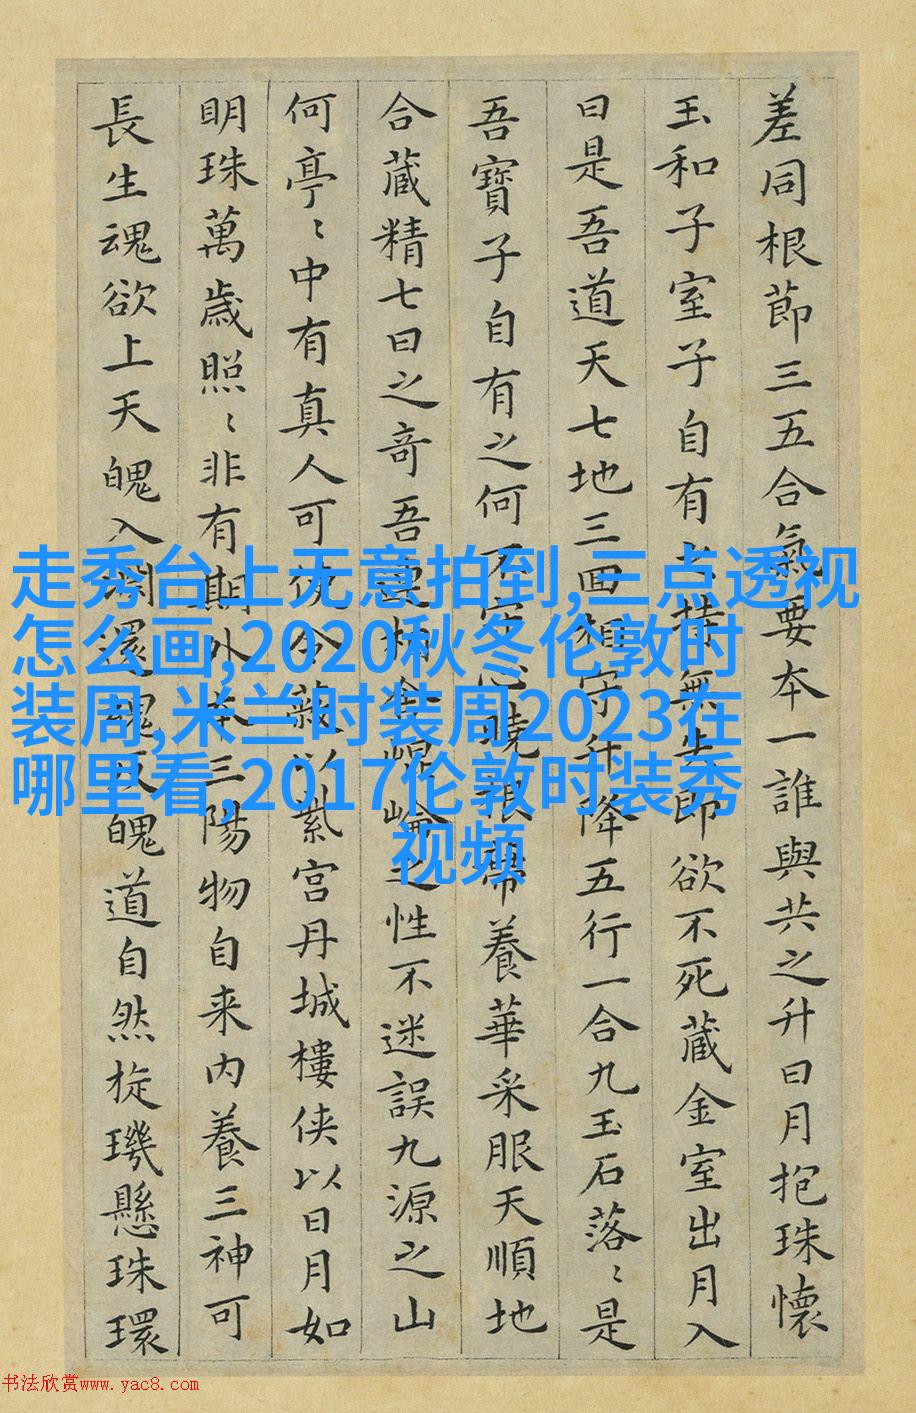 差同根節三五合氣要本一誰與共之升日月抱珠懷
玉和子室子自有之持無失即欲不死藏金室出月入
日是吾道天七地三回相守升降五行一合九玉石落〻是
吾寶子自有之何不守心曉根蔕養華采服天順地
合藏精七日之奇吾連相合崐崘之性不迷誤九源之山
何亭〻中有真人可使令蔽以紫宮丹城樓俠以日月如
明珠萬歲照〻非有期外本三陽物自来内養三神可
長生魂欲上天魄入渊還魂反魄道自然旋璣懸珠環
走秀台上无意拍到,三点透视
怎么画,2020秋冬伦敦时
装周,米兰时装周2023在
哪里看,2017伦敦时装秀
视频
书法欣赏www.yac8.com